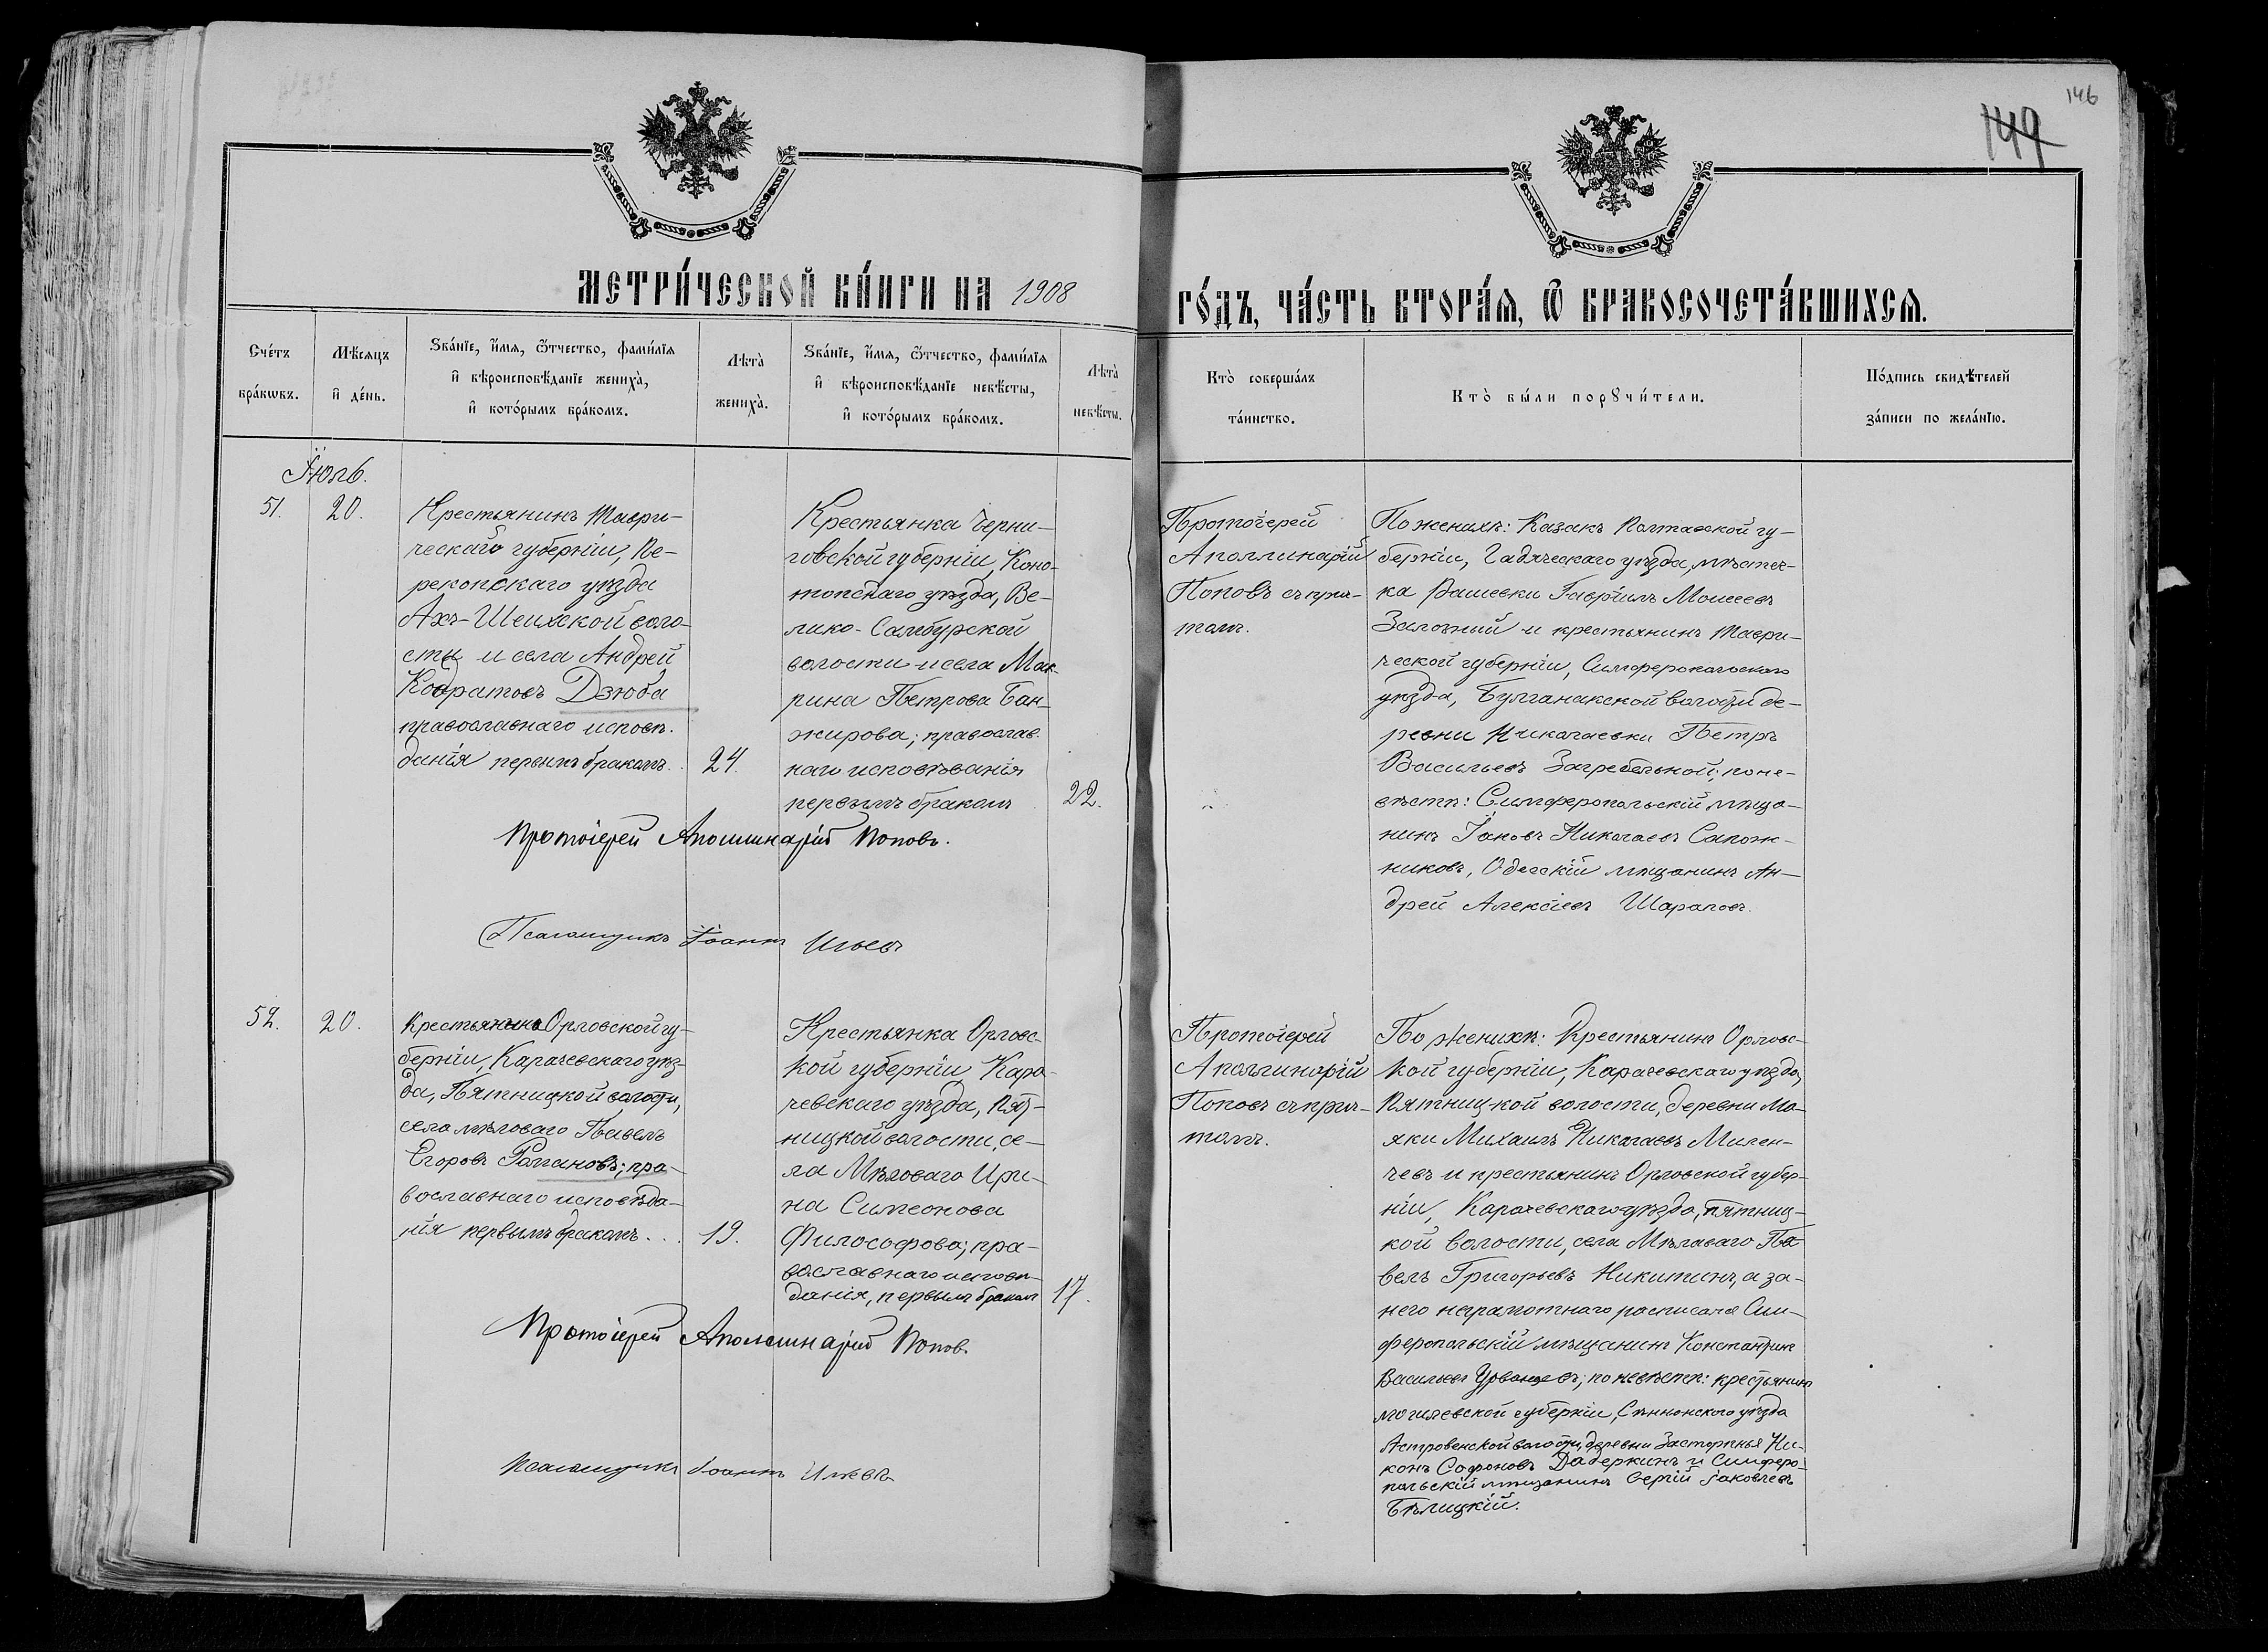 146
149
МЕТРИ́ЧЕСКОЙ КНИ́ГИ НА 1908
ГО́ДЪ, ЧА́СТЬ ВТОРА́Я, Ѿ БРАКОСОЧЕТА́ВШИХСЯ.
Сче́тъ
бра́кѡвъ.
Мѣ́сяцъ
и҆ де́нь.
Ѕва́нїе, и҆́мя, ѻ҆́тчество, фами́лїя
и҆ вѣроисповѣ́данїе жениха̀,
и҆ кото́рымъ бра́комъ.
Лѣта̀
жениха̀.
Ѕва́нїе, и҆́мя, ѻ҆́тчество, фами́лїя
и҆ вѣроисповѣ́данїе невѣ́сты,
и҆ кото́рымъ бра́комъ.
Лѣта̀
невѣ́сты.
Кто̀ соверша́лъ
та́инство.
Кто̀ бы́ли порꙋчи́тели.
По́дпись свидѣ́телей
за́писи по жела́нїю.
Іюль.
51.
20.
Крестьянинъ Таври-
ческаго губерніи, Пе-
рекопскаго уѣзда
Ахъ-Шеихской воло-
сти и села Андрей
Кодратовъ Дзюба
православнаго исповѣ-
данія первымъ бракомъ.
24.
Крестьянка Черни-
говской губерніи, Коно-
топскаго уѣзда, Ве-
лико-Самбурской
волости и села Мак-
рина Петрова Бан-
жирова; православ-
наго исповѣванія
первымъ бракомъ
22.
Протоіерей
Аполлинарій
Поповъ съ при-
томъ.
По женихѣ: Казакъ Полтавской гу-
берніи, Гадяческаго уѣзда, мѣстеч-
ка Рашевки Гавріилъ Моисеевъ
Залозный и крестьянинъ Таври-
ческой губерніи, Симферопольскаго
уѣзда, Булганакской волости де-
ревни Николаевки Петръ
Васильевъ Загребельной; по не-
вѣстѣ: Симферопольскій мѣща-
нинъ Іаковъ Николаевъ Сапож-
никовъ, Одесскій мѣщанинъ Ан-
дрей Алексіевъ Шараповъ.
Протоіерей Аполлинарій Поповъ.
Псаломщикъ Іоаннъ Ильевъ
52.
20.
Крестьянинъ Орловской гу-
берніи, Карачевскаго уѣз-
да, Пятницкой волости,
села Мѣловаго Павелъ
Егоровъ Романовъ; пра-
вославнаго исповѣда-
нія первымъ бракомъ...
19.
Крестьянка Орловс-
кой губерніи, Кара-
чевскаго уѣзда, Пят-
ницкой волости, се-
ла Мѣловаго Ири-
на Симеонова
Философова; пра-
вославнаго исповѣ-
данія, первымъ бракомъ
17.
Протоіерей
Аполлинарій
Поповъ съ прич-
томъ.
По женихѣ: Крестьянинъ Орловс-
кой губерніи, Карачевскаго уѣзда,
Пятницкой волости, деревни Ма-
яки Михаилъ Николаевъ Милен-
чевъ и крестьянинъ Орловской губер-
ніи, Карачевскаго уѣзда, Пятниц-
кой волости, села Мѣлаваго Па-
велъ Григорьевъ Никитинъ, а за-
него неграмотнаго росписался Сим-
феропольскій мѣщанинъ Константинъ
Васильевъ Урванцевъ; по невѣстѣ: крестьянинъ
Могилевской губерніи, Сѣннонскаго уѣзда
Астровенской волости, деревни Застаринья Ни-
конъ Софоновъ Дадеркинъ и Симферо-
польскій мѣщанинъ Сергій Іаковлевъ
Бѣлицкій.
Протоіерей Аполлинарій Поповъ
Псаломщикъ Іоаннъ Ильевъ